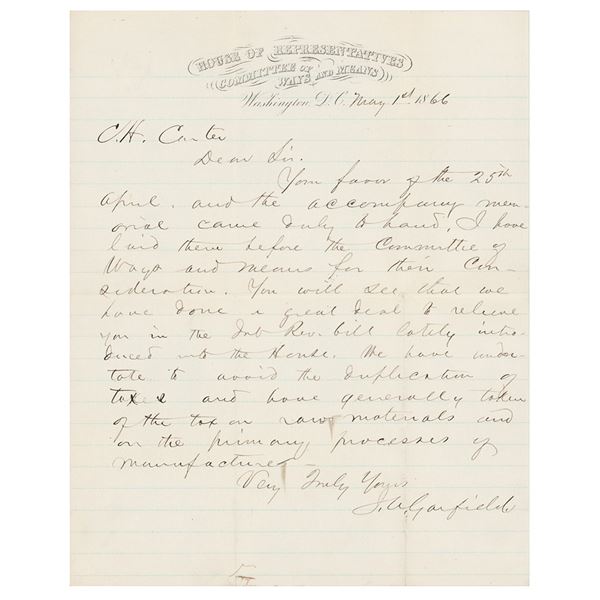 HOUSE OF REPRESENTATIVES
COMMITTEE OF
WAYS AND MEANS
Washington, D.C. May 1st 1866
C.H. Carter
Dear Sir.
Your favor of the 25th
April. and the accompany mem-
orial came duly to hand. I have
laid them before the Committee of
Ways and means for their Con-
sideration. You will see that we
have done a great deal to relieve
you in the Int Rev. bill lately intro-
duced into the House. We have under-
tate to avoid the duplication of
taxes and have generally taken
off the tax on raw materials and
on the primary processes of
manufactures –
Very Truly Yours
J.A. Garfield